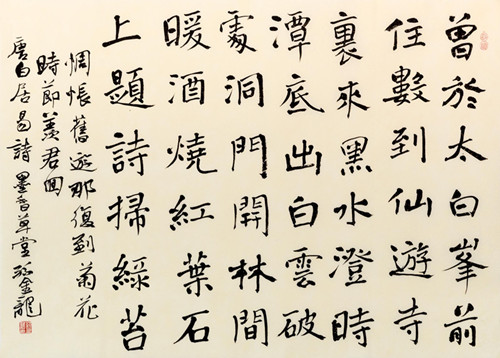 曾於太白峯前
住數到仙遊寺
裏來黑水澄時
潭底出白雲破
處洞門開林間
暖酒燒紅葉石
上題詩掃綠苔
惆悵舊遊那復到菊花
時節羨君回
唐白居易詩墨香草堂金龍